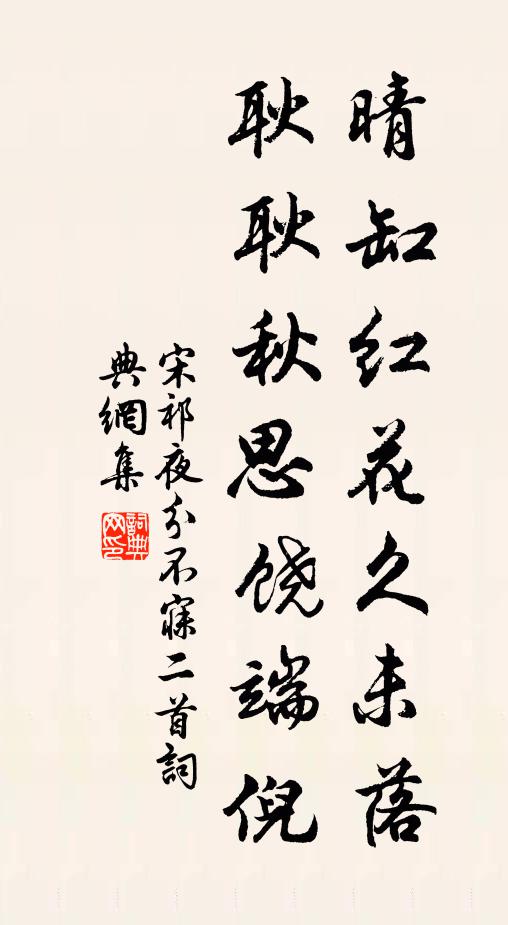 晴缸红花久未落
耿耿秋思饶端倪
宋祁夜分不寐二首詞
典網集
詞典网印